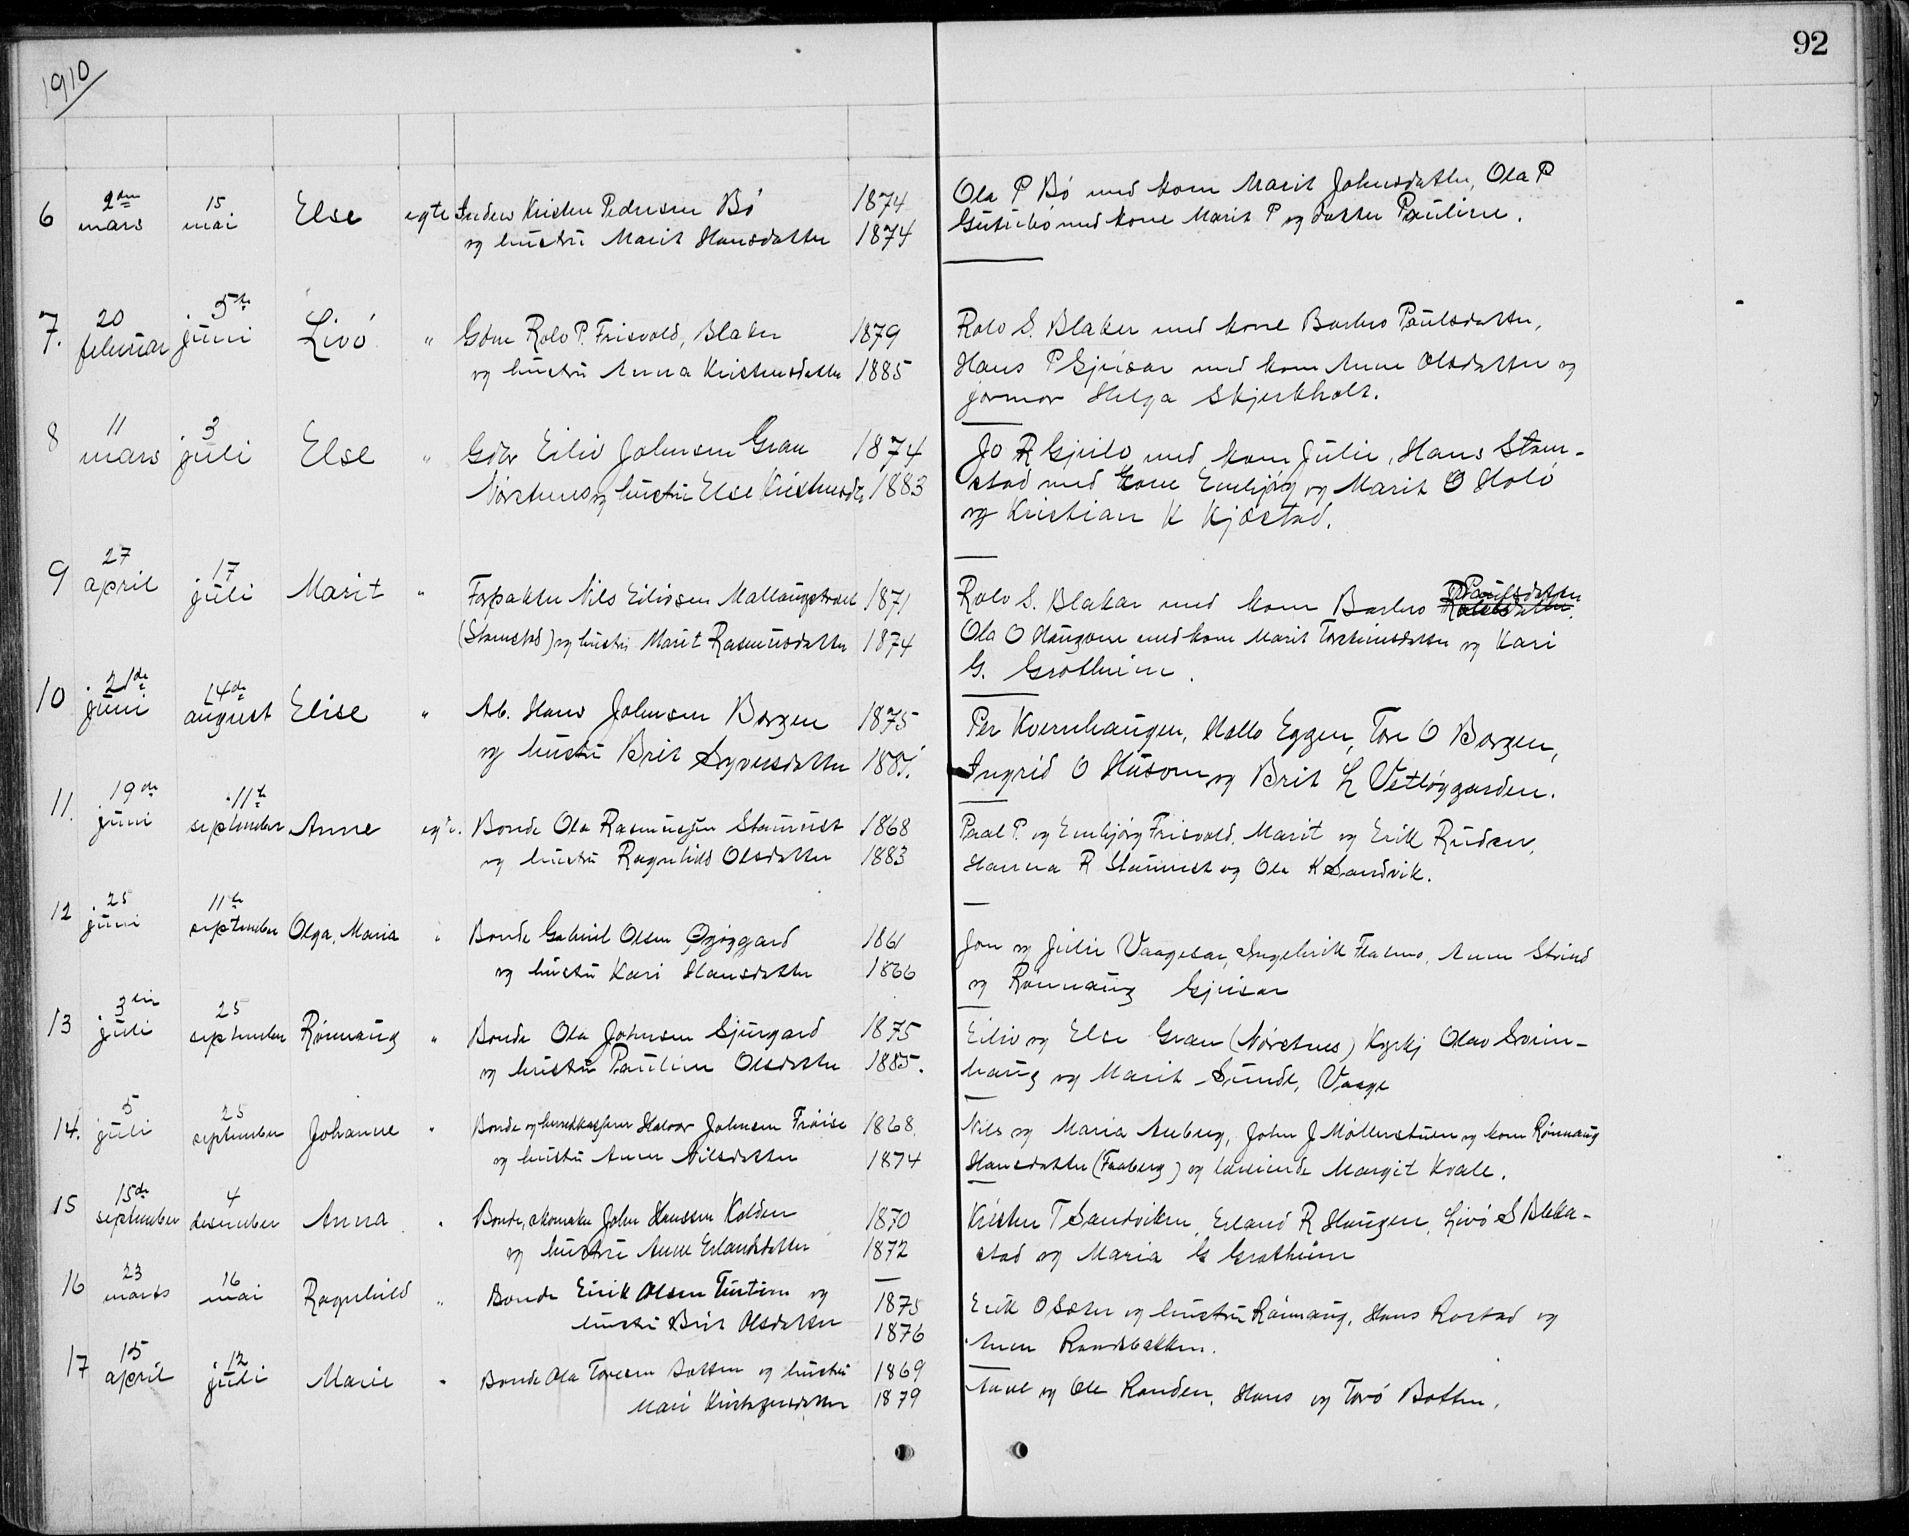 92
1910
6 2den mars 15 mai Else egte Inders Kristen Pedersen Bø 1874
og hustru Marit Hansdatter 1874
Ola P Bø med kone Marit Johnsdatter, Ola P
med kone Marit P og datter Pauline.
7. 20 februar 5te juni Livø " Gbr Rolv P. Frisvold, Blaker 1879
og hustru Anna Kristensdatter 1885
Rolv S. Blaker med kone Barbro Paulsdatter,
Hans P Gjeisar med kone Anne Olsdatter og
jormor Helga Skjerkholt.
8 11 mars 3 juli Else " Gbr Eiliv Johnsen Gran 1874
Nørstnes og hustru Else Kristensdtr 1883
Jo R Gjeilo med kone Julie, Hans Stam-
stad med kone Embjørg og Marit O Holø
og Kristian K Kjæstad.
9 27 april 17 juli Marit " Forpakter Nils Eilivsen 1871
(Stamstad) og hustru Marit Rasmusdatter 1874
Rolv S. Blakar med kone Barbro Paulsdatter
Ola O Haugom med kone Marit Torsteinsdatter og Kari
G. Grotheim.
10 21de juni 14de august Elise " Ab. Hans Johnsen Borgen 1875
og hustru Brit Syversdatter 1881.
Per Kvernhaugen, Mallo Eggen, Tore O Borgen,
Ingrid O Husom og Brit L Vetløygarden.
11. 19de juni 11te september Anne egte. Bonde Ola Rasmussen Staurust 1868
og hustru Ragnhild Olsdatter 1883
Paal P. og Embjørg Frisvold, Marit og Erik Ruden,
Hanna R Staurust og Ola K Sandvik.
12 25 juni 11te september Olga, Maria " Bonde Gabriel Olsen 1861
og hustru Kari Hansdatter 1866
Jon og Julie Vaagesar, Ingebrik Flatmo, Anne Strind
og Rønnaug Gjeisar
13 3die juli 25 september Rønnaug " Bonde Ola Johnsen Sjurgard 1875
og hustru Pauline Olsdatter 1885.
Eiliv og Else Gran (Nørstnes) Kyrkj Olav Svein-
haug og Marit Sunde, Vaage
14. 5 juli 25 september Johanne " Bonde og Halvor Johnsen Frøise 1868
og hustru Anne Nilsdatter 1874
Nils og Maria Auberg, John J Møllerstuen og kone Rønnaug
Hansdatter (Faaberg) og lærerinde Margit Kvale.
15 15de september 4 desember Anna " Bonde, skomaker John Hanssen Kolden 1870
og hustru Anne Erlandsdatter 1872
Kristen T Sandviken, Erland R Haugen, Livø S Blaka-
stad og Maria G Grotheim
16 23 marts 16 mai Ragnhild " Bonde Eirik Olsen og 1875
hustru Brit Olsdatter 1876
Erik O Sæter og hustru Rønnaug, Hans Rostad og
Anne Randsbakken.
17 15 april 12 juli Marie " Bonde Ola Toresen Botten og hustru 1869
Mari Kristensdatter 1879
Anne og Ole Randen, Hans og Torø Botten.